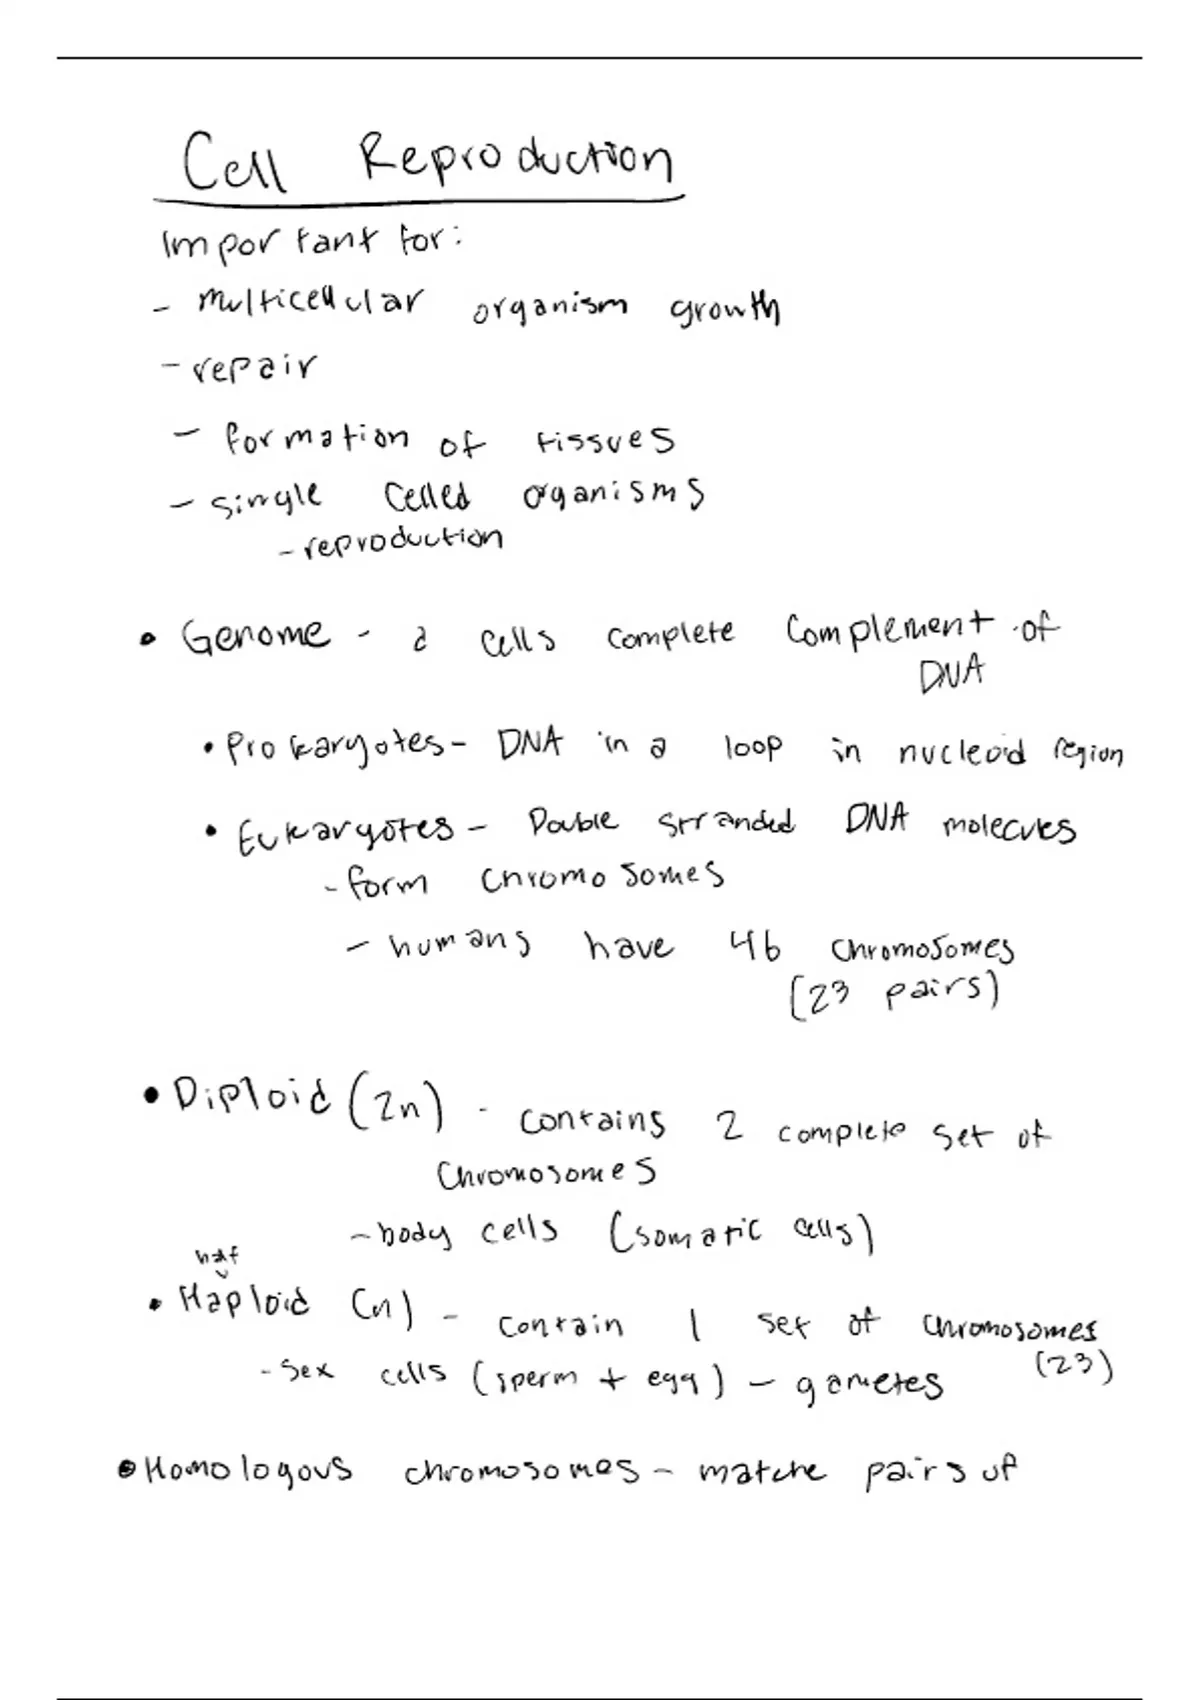 Cell Reproduction
Important for:
- multicellular organism growth
- repair
- formation of tissues
- single celled organisms
- reproduction
• Genome - a cells complete complement of
DNA
• Prokaryotes - DNA in a loop in nucleoid region
• Eukaryotes - Double stranded DNA molecules
- form chromosomes
- humans have 46 chromosomes
(23 pairs)
• Diploid (2n) - contains 2 complete set of
chromosomes
- body cells (somatic cells)
half
• Haploid (n) - contain 1 set of chromosomes
(23)
- sex cells (sperm + egg) - gametes
• Homologous chromosomes - matche pairs of